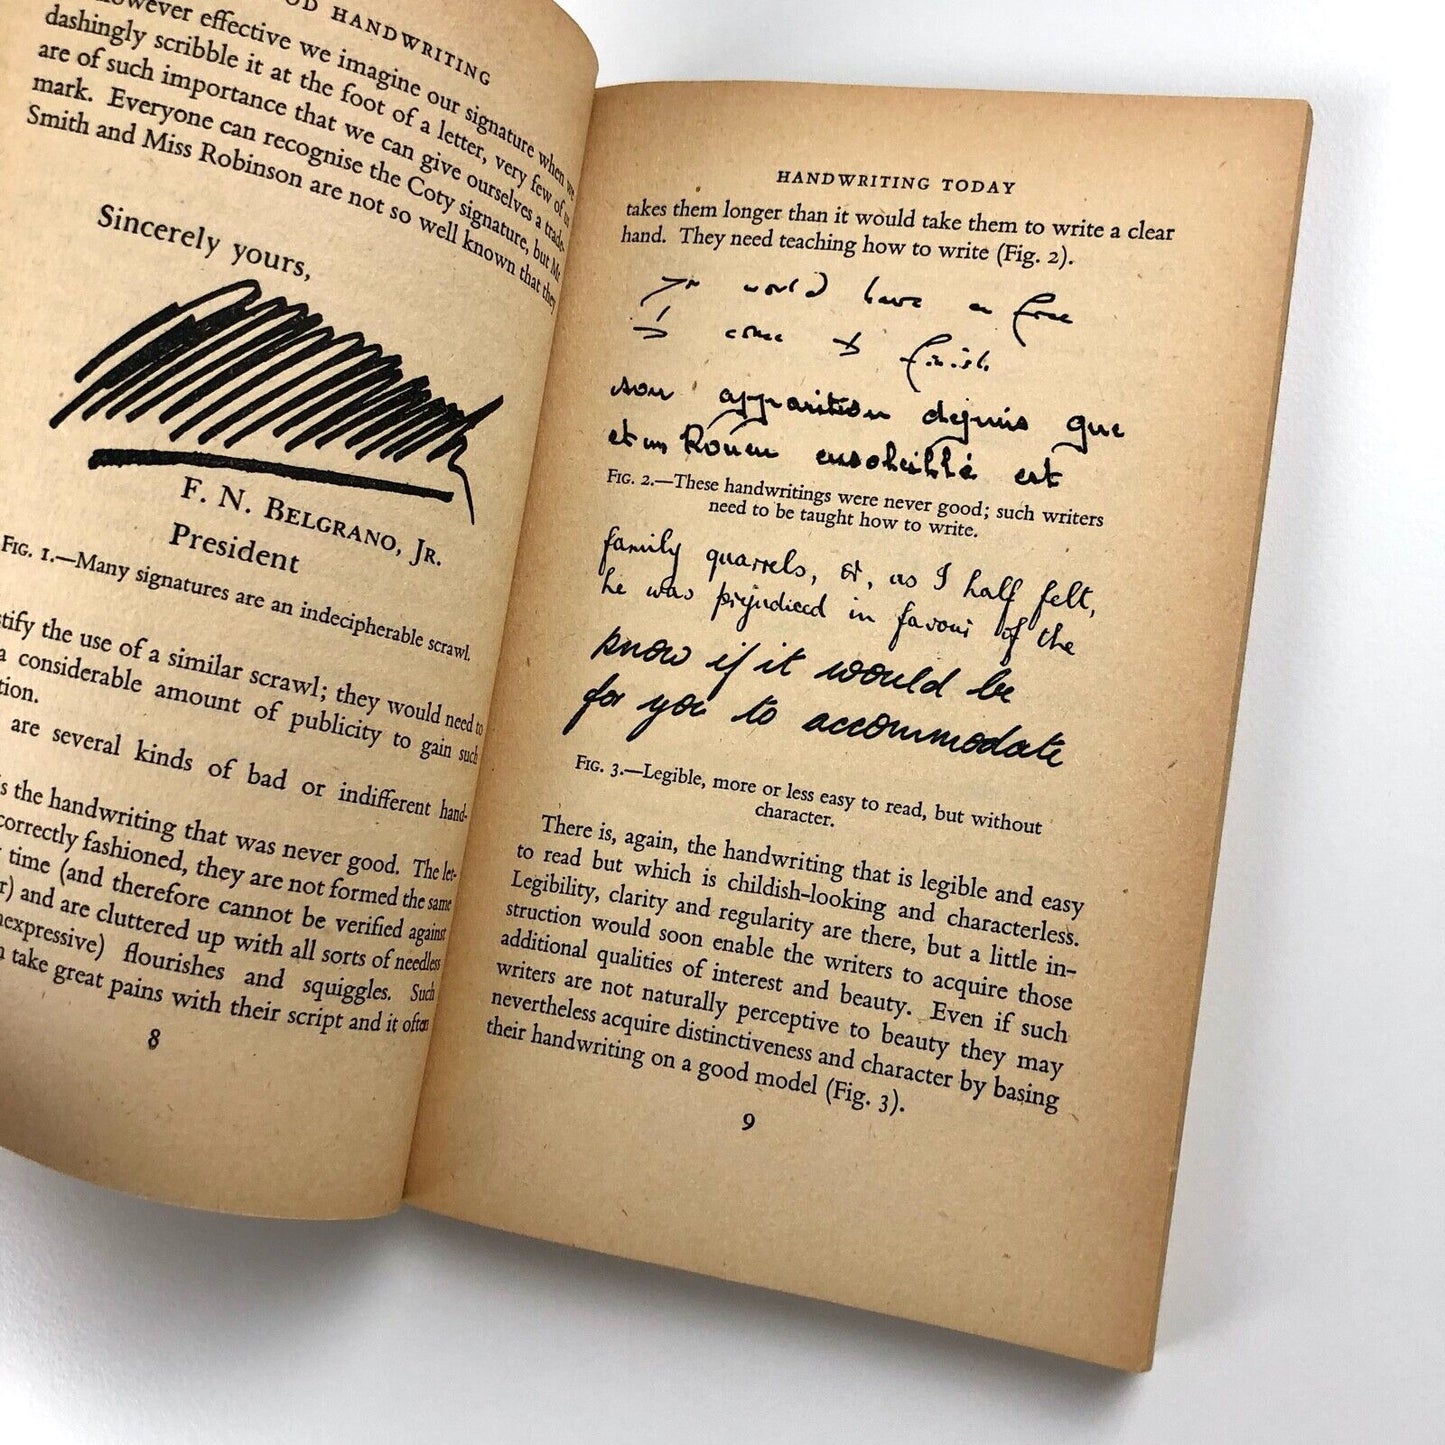 OD HANDWRITING
however effective we imagine our signature when we
dashingly scribble it at the foot of a letter, very few of us
are of such importance that we can give ourselves a trade-
mark. Everyone can recognise the Coty signature, but Mr
Smith and Miss Robinson are not so well known that they
Sincerely yours,
F. N. BELGRANO, JR.
President
FIG. 1.—Many signatures are an indecipherable scrawl.
tify the use of a similar scrawl; they would need to
a considerable amount of publicity to gain such
tion.
are several kinds of bad or indifferent hand-
s the handwriting that was never good. The let-
correctly fashioned, they are not formed the same
time (and therefore cannot be verified against
r) and are cluttered up with all sorts of needless
nexpressive) flourishes and squiggles. Such
n take great pains with their script and it often
8
HANDWRITING TODAY
takes them longer than it would take them to write a clear
hand. They need teaching how to write (Fig. 2).
would have a free
come to finish
son apparition depuis que
et un Rouen ensoleillé est
FIG. 2.—These handwritings were never good; such writers
need to be taught how to write.
family quarrels, &, as I half felt,
he was prejudiced in favour of the
know if it would be
for you to accommodate
FIG. 3.—Legible, more or less easy to read, but without
character.
There is, again, the handwriting that is legible and easy
to read but which is childish-looking and characterless.
Legibility, clarity and regularity are there, but a little in-
struction would soon enable the writers to acquire those
additional qualities of interest and beauty. Even if such
writers are not naturally perceptive to beauty they may
nevertheless acquire distinctiveness and character by basing
their handwriting on a good model (Fig. 3).
9